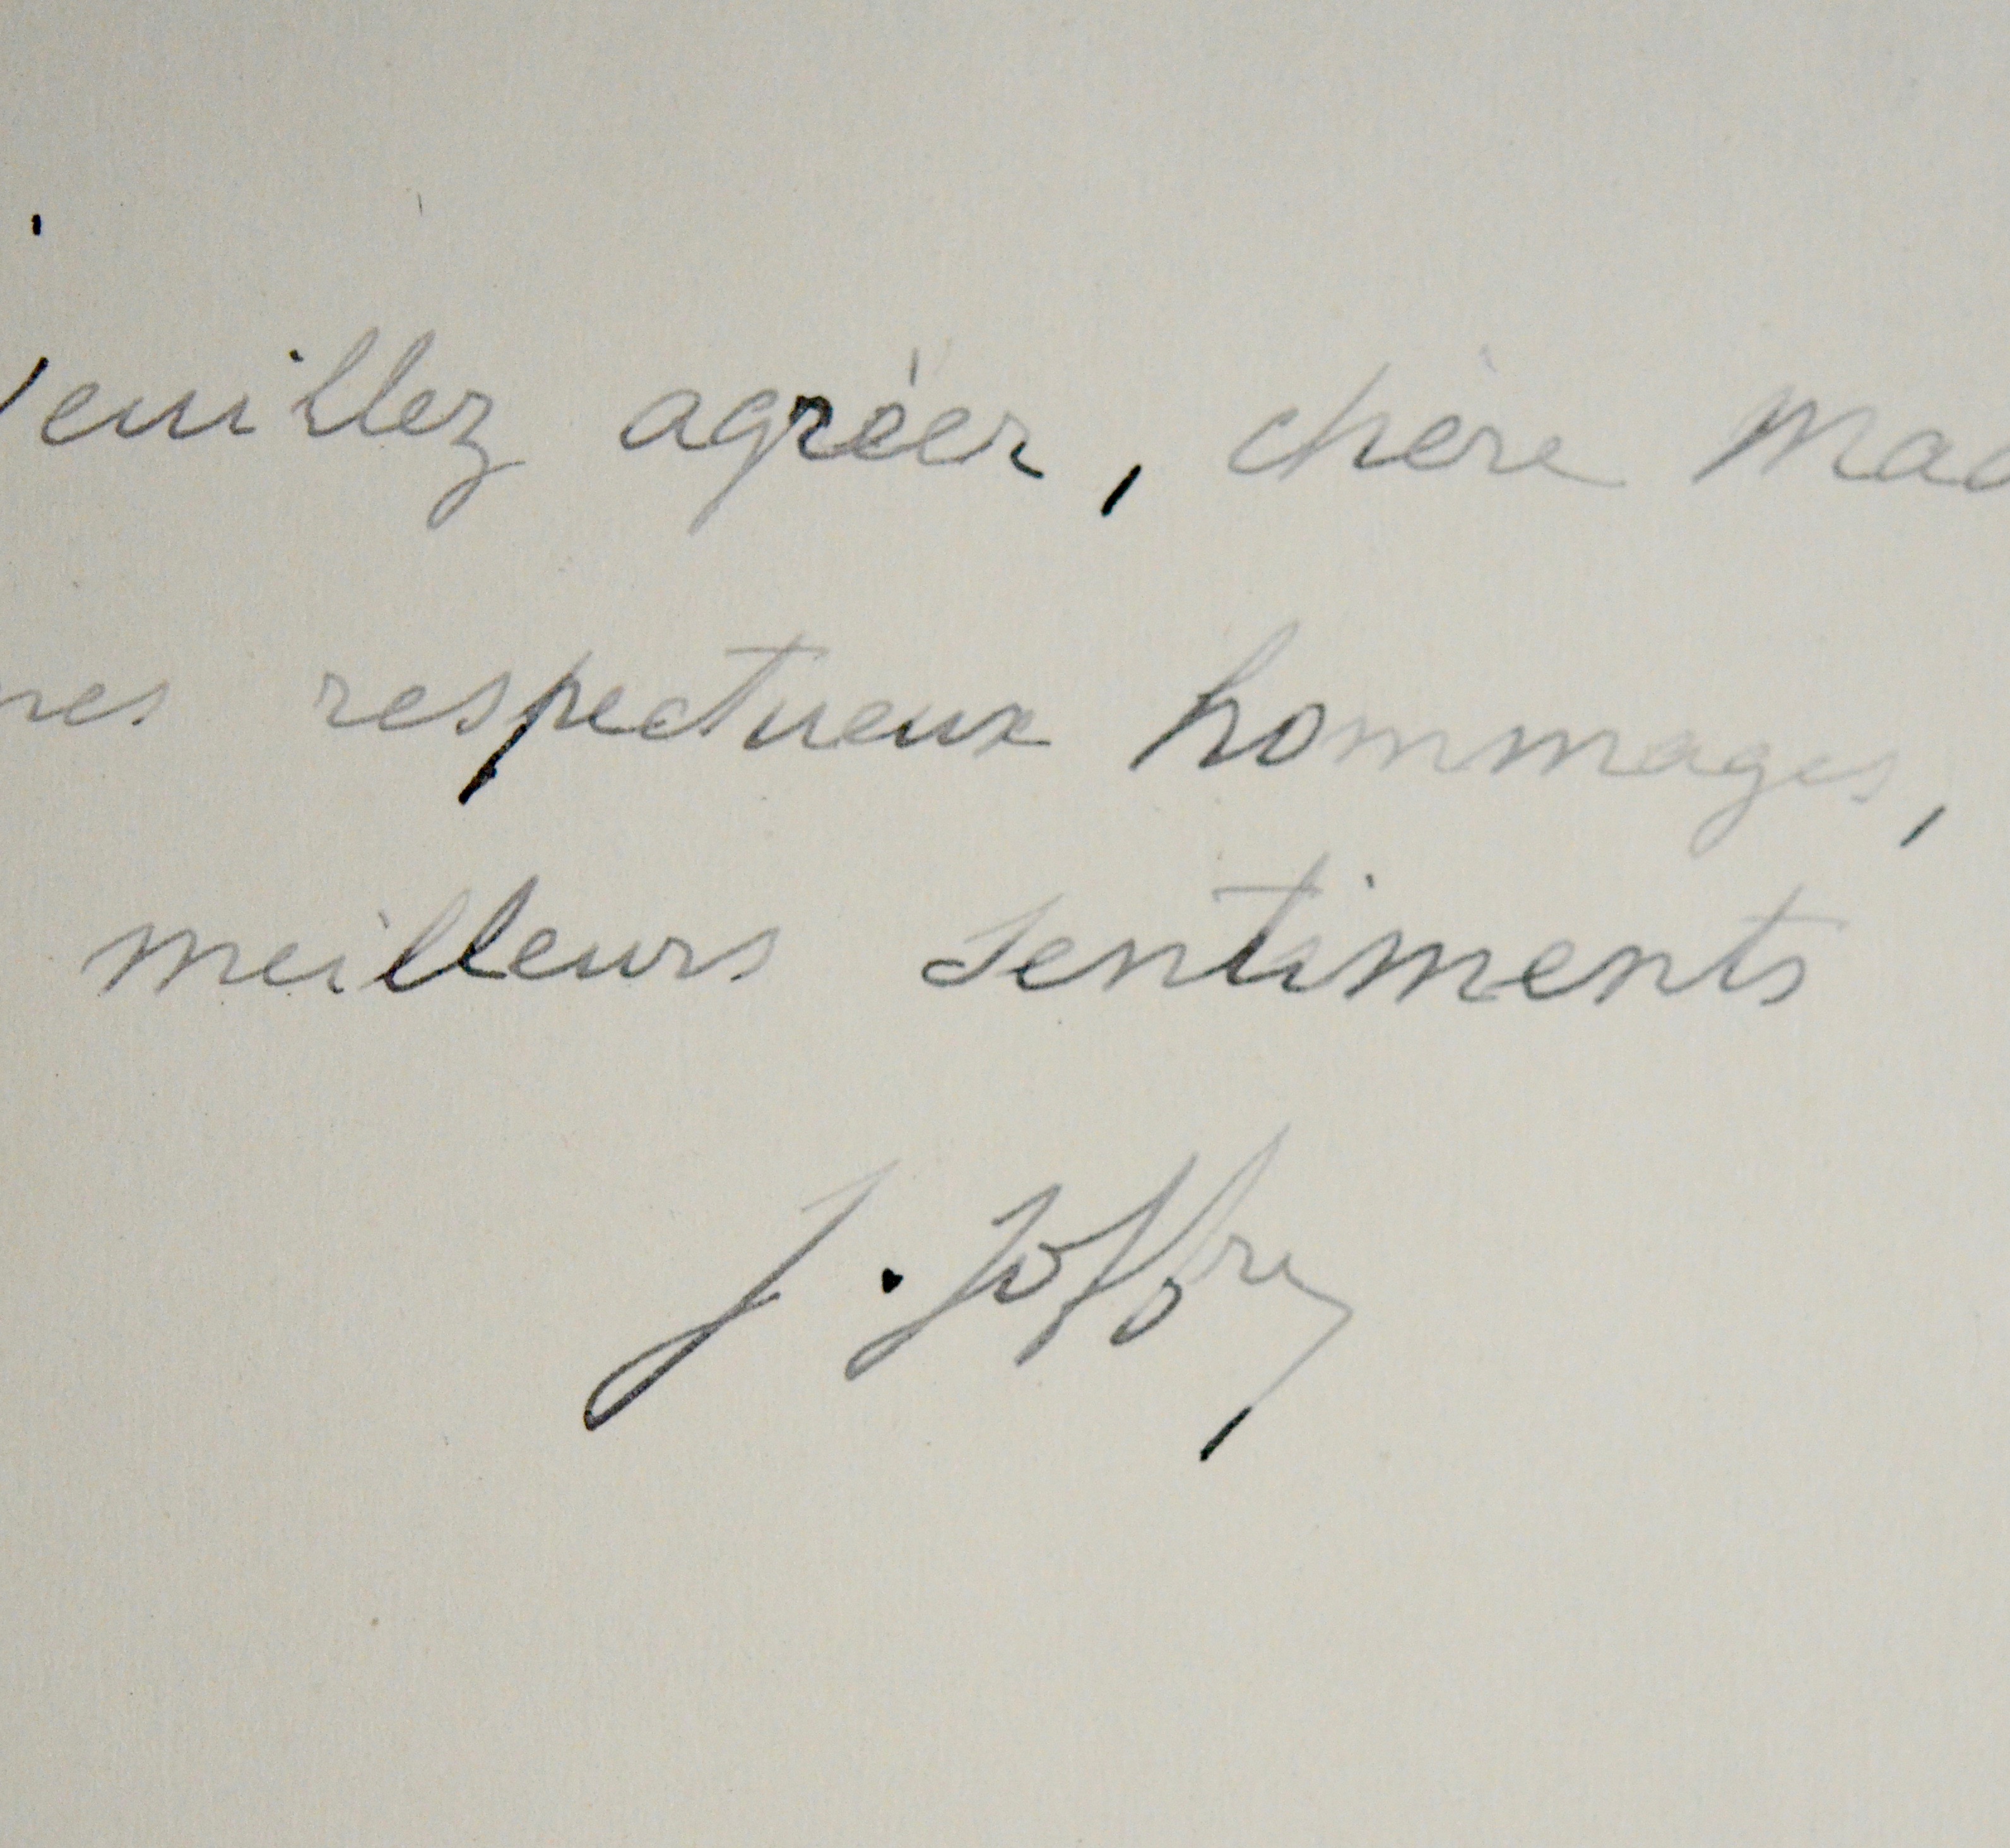 Veuillez agréer, chère Mad
mes respectueux hommages,
meilleurs sentiments
J. Joffre